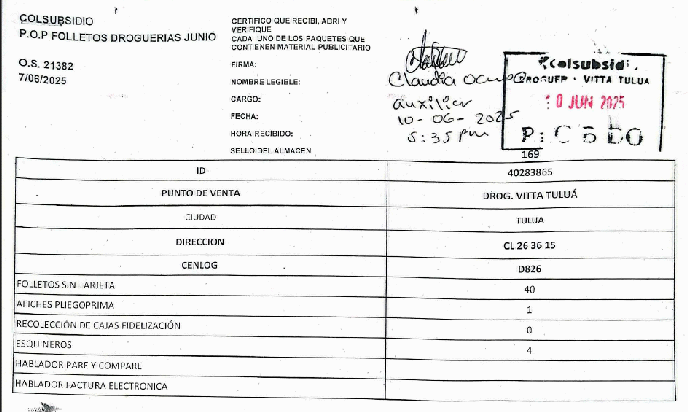 COLSUBSIDIO
P.O.P FOLLETOS DROGUERIAS JUNIO
O.S. 21382
7/06/2025
CERTIFICO QUE RECIBI, ABRI Y
VERIFIQUE
CADA UNO DE LOS PAQUETES QUE
CONTIENEN MATERIAL PUBLICITARIO
FIRMA:
NOMBRE LEGIBLE: Claudia
CARGO: Auxiliar
FECHA: 10-06-2025
HORA RECIBIDO: 5:35 pm
SELLO DEL ALMACEN
Colsubsidi
VITTA TULUA
10 JUN 2025
169
ID 40283865
PUNTO DE VENTA DROG. VITTA TULUÁ
CIUDAD TULUA
DIRECCION CL 26 36 15
CENLOG D826
FOLLETOS SIN TARJETA 40
AFICHES PLIEGOPRIMA 1
RECOLECCIÓN DE CAJAS FIDELIZACIÓN 0
ESQUINEROS 4
HABLADOR PARE Y COMPARE
HABLADOR FACTURA ELECTRONICA